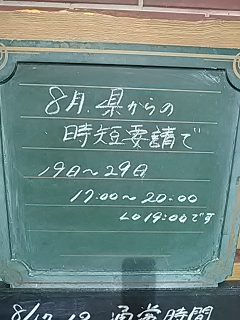 8月.県からの
時短要請で
19日〜29日
17:00〜20:00
LO19:00です
8/17.18 通常時間